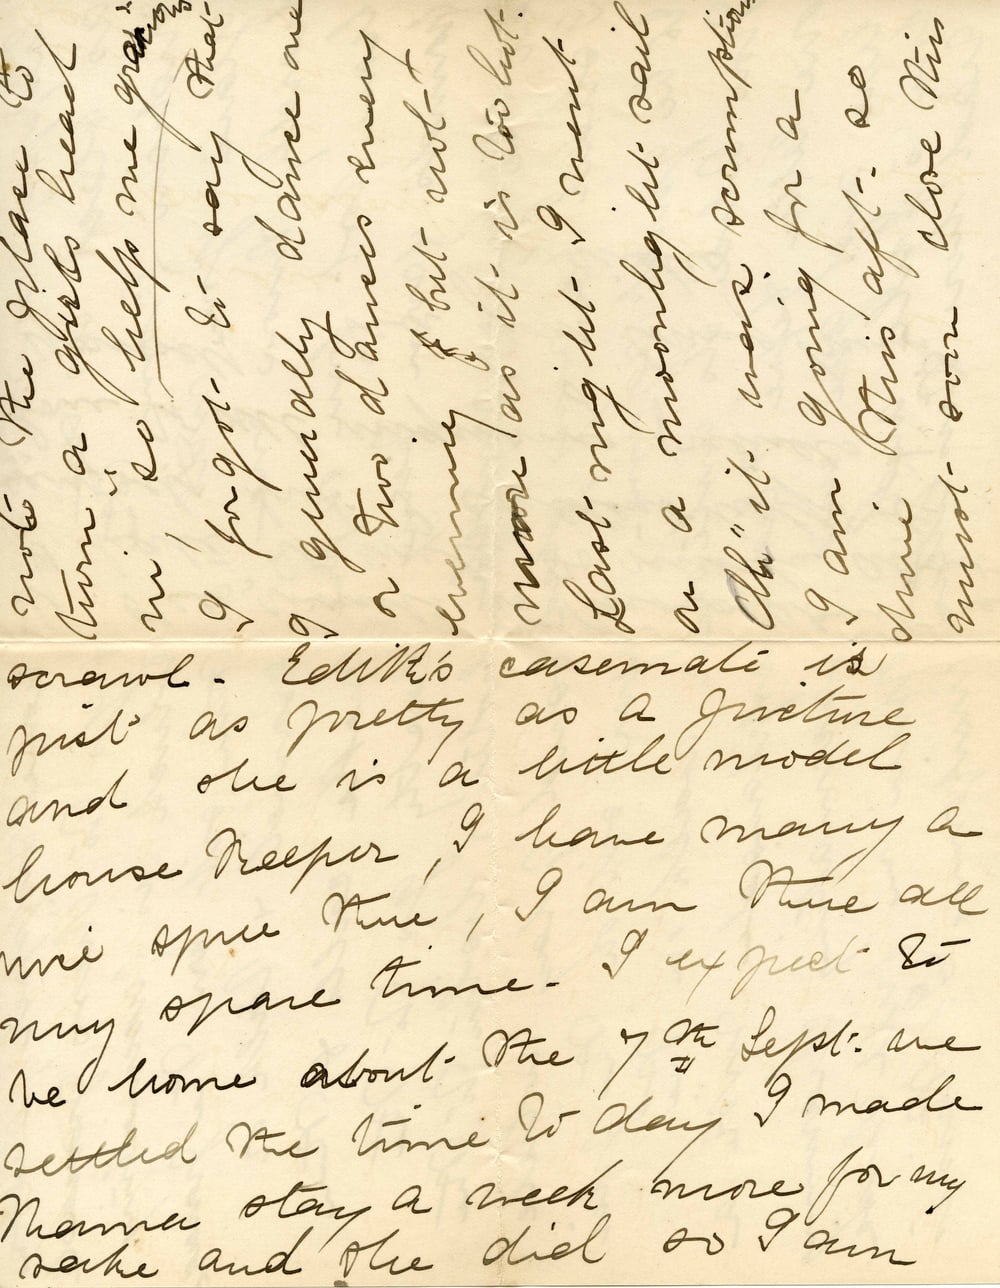 not the place to
turn a girls head
in "so help me gracious"
I forgot to say that
I generally dance one
or two dances every
evening but not
more as it is too hot.
Last night I went
on a moonlight sail
"Ah" it was scrumptious
I am going for a
drive this aft- so
must soon close this
scrawl - Edith's casemate is
just as pretty as a picture
and she is a little model
house keeper, I have many a
nice spree there, I am there all
my spare time - I expect to
be home about the 7th Sept. we
settled the time to day I made
Mama stay a week more for my
sake and she did so I am